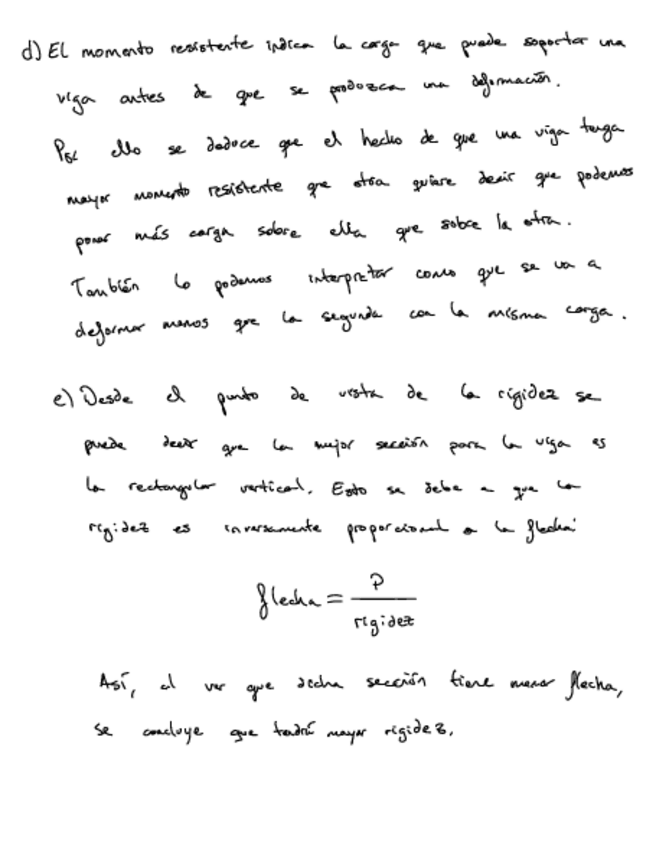 d) El momento resistente indica la carga que puede soportar una
viga antes de que se produzca una deformación.
Por ello se deduce que el hecho de que una viga tenga
mayor momento resistente que otra quiere decir que podemos
poner más carga sobre ella que sobre la otra.
También lo podemos interpretar como que se va a
deformar menos que la segunda con la misma carga.
e) Desde el punto de vista de la rigidez se
puede decir que la mejor sección para la viga es
la rectangular vertical. Esto se debe a que la
rigidez es inversamente proporcional a la flecha:
flecha = P / rigidez
Así, al ver que dicha sección tiene menor flecha,
se concluye que tendrá mayor rigidez.